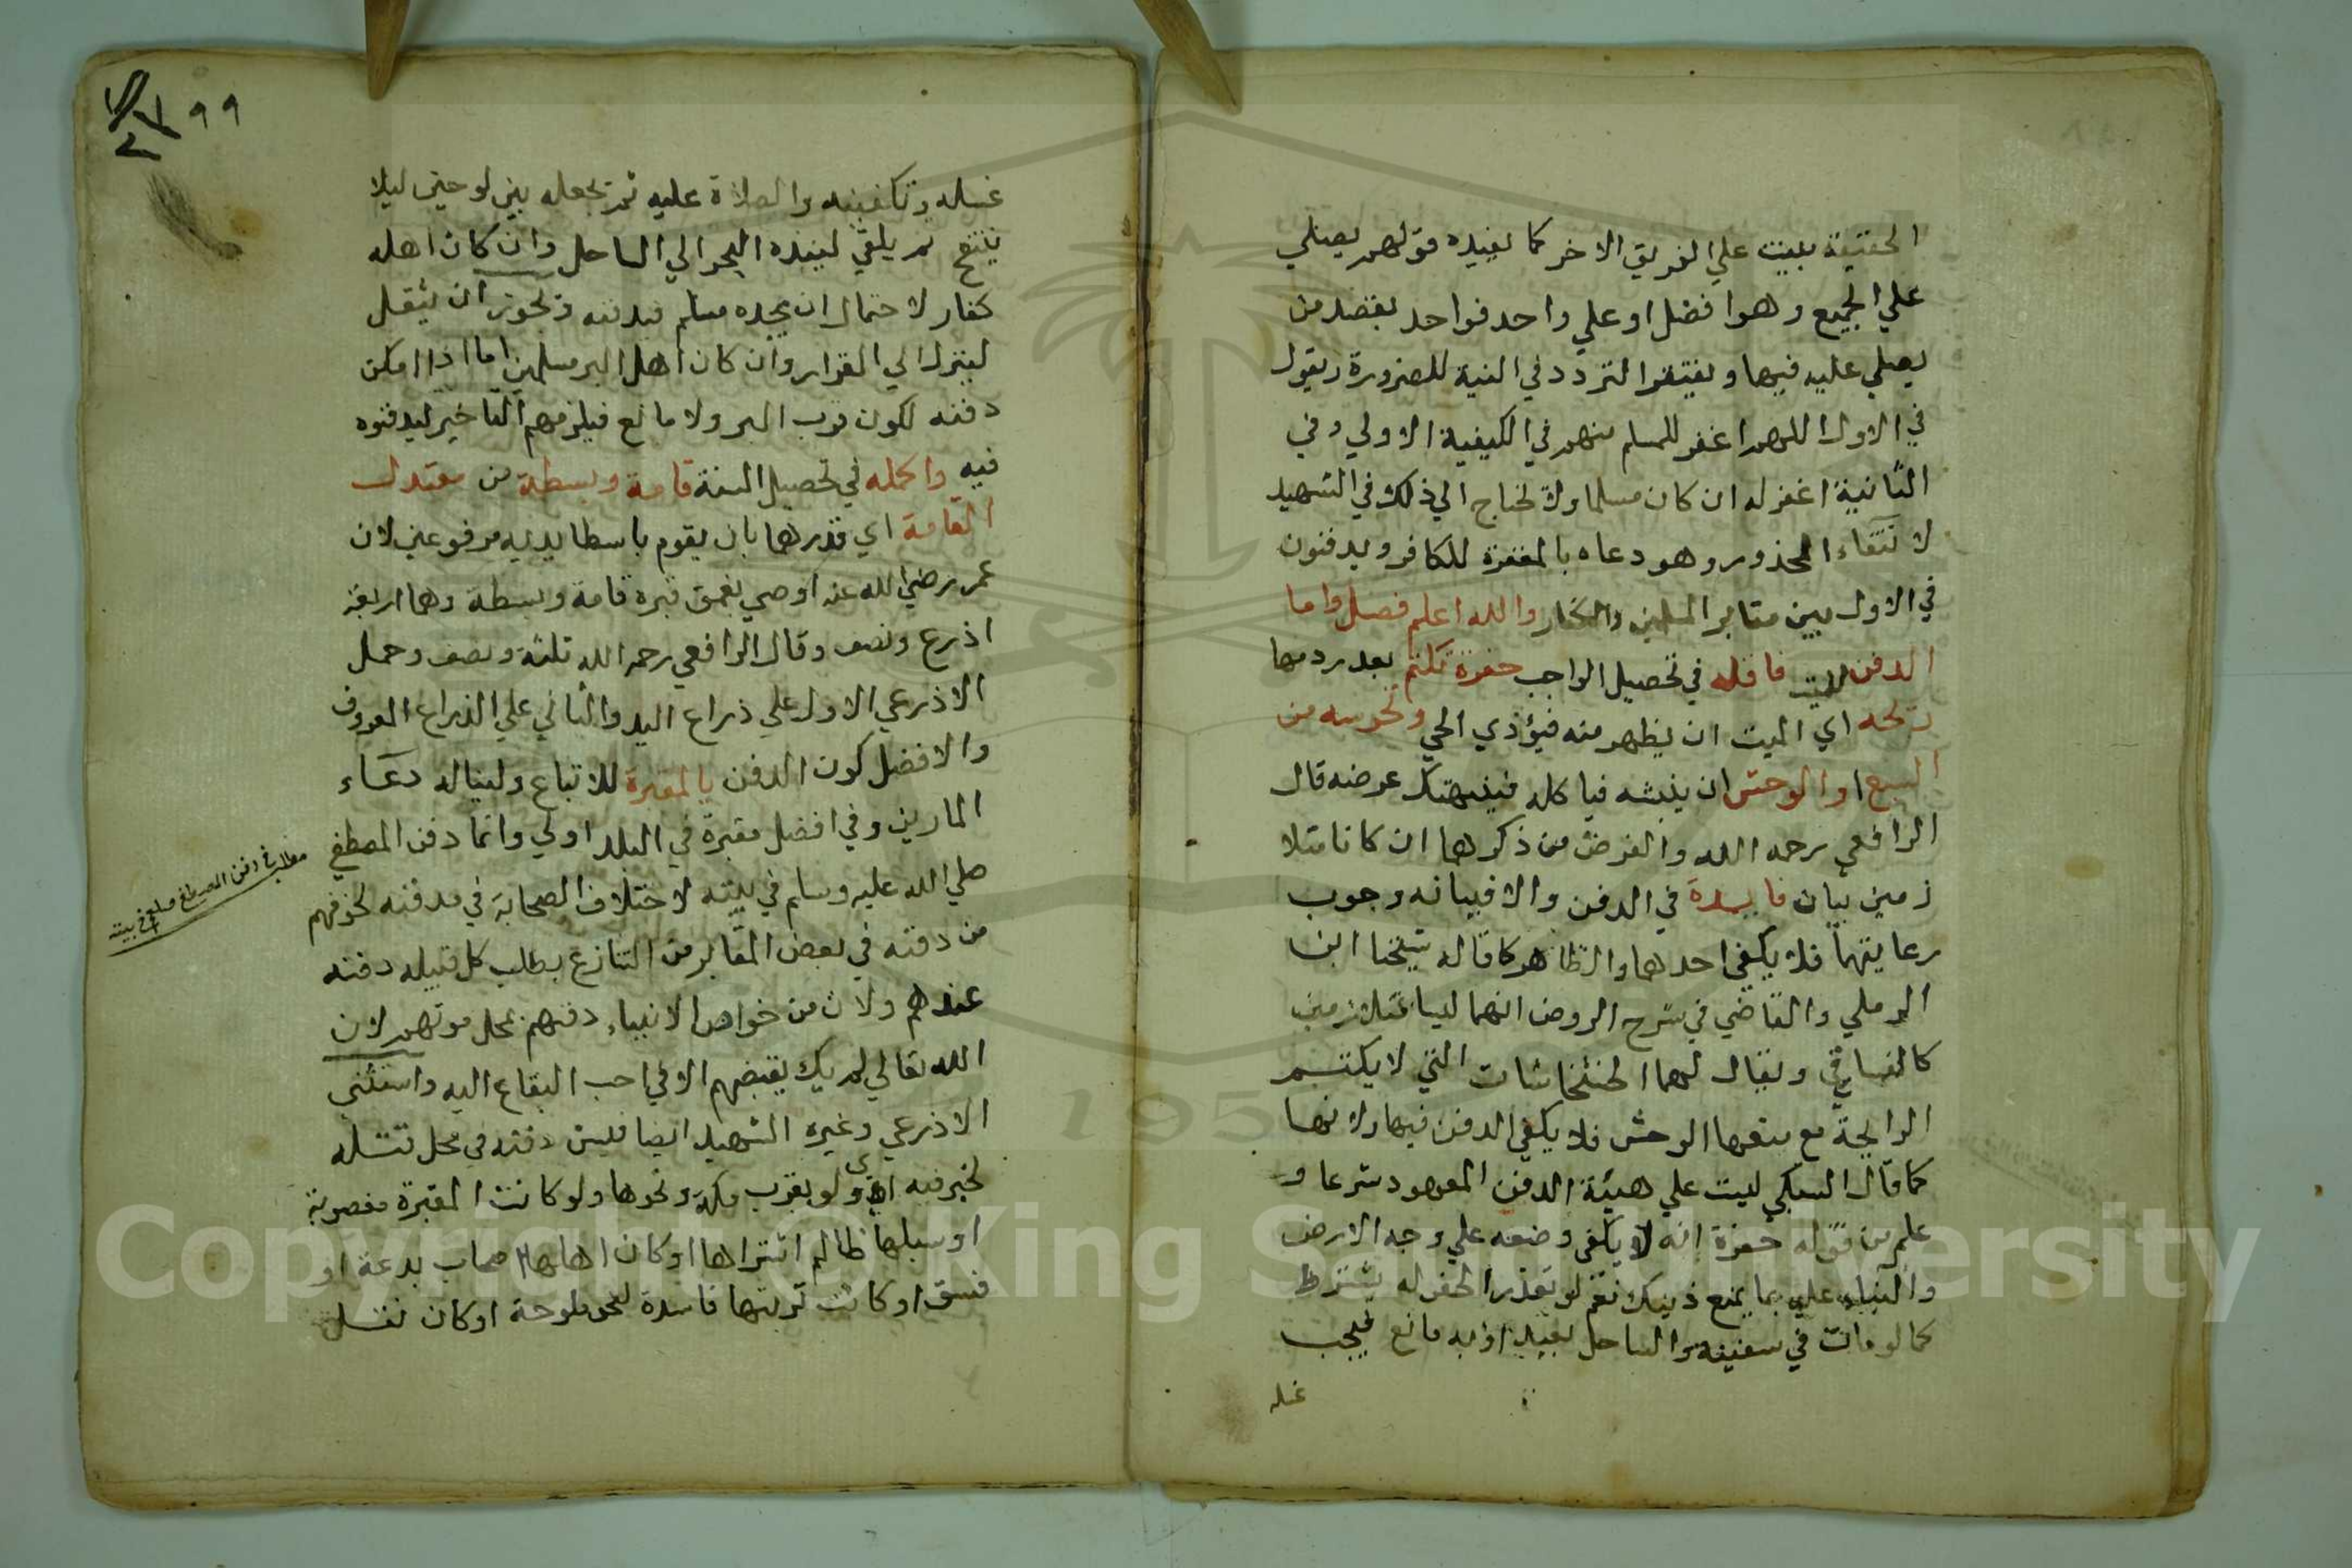 الحقيقة بليت علي الفريق الاخر كما يفيده قولهم يصلي
علي الجميع وهو افضل او علي واحد فواحد بقصد من
يصلي عليه فيهما ويغتفر التردد في النية للضرورة ويقول
في الاول اللهم اغفر للمسلم منهم في الكيفية الاولي وفي
الثانية اغفر له ان كان مسلما ولا تحتاج الي ذلك في الشهيد
لانتقاء المحذور وهو دعاه بالمغفرة للكافر ويدفنون
في الاول بين مقابر المسلمين والكفار والله اعلم فصل واما
الدفن للميت فاقله في تحصيل الواجب حفرة تكتم بعد ردمها
ريحه اي الميت ان يظهر منه فيؤذي الحي وتحرسه من
السبع او الوحش ان ينبشه فياكله فينهتك عرضه قال
الرافعي رحمه الله والغرض من ذكرهما ان كانا متلا
زمين بيان فايدة في الدفن والا فبيانه وجوب
رعايتهما فلا يكفي احدهما والظاهر كما قاله شيخنا ابن
الرملي والقاضي في شرح الروض انهما ليسا متلازمين
كالفساقي ويقال لهما الخشخاشات التي لا يكتم
الرايحة مع منعها الوحش فلا يكفي الدفن فيها ولانها
كما قال السبكي ليست علي هيئة الدفن المعهود شرعا و
علم من قوله حفرة انه لا يكفي وضعه علي وجه الارض
والبناء عليه بما يمنع ذينك نعم لو تعذر الحفر له يشترط
كما لو مات في سفينة والساحل بعيد او به مانع فيجب
غسله
٩٩
غسله وتكفينه والصلاة عليه ثم تجعله بين لوحين ليلا
ينتفخ ثم يلقي لينبذه البحر الي الساحل وان كان اهله
كفار لاحتمال ان يجده مسلم فيدفنه وتجوز ان يثقل
لينزل الي القرار وان كان اهل البر مسلمين اما اذا امكن
دفنه لكون قرب البر ولا مانع فيلزمهم التاخير ليدفنوه
فيه واكمله في تحصيل السنة قامة وبسطة من معتدل
القامة اي قدرهما بان يقوم باسطا يديه مرفوعين لان
عمر رضي الله عنه اوصي بعمق قبره قامة وبسطة وهما اربعة
اذرع ونصف وقال الرافعي رحمه الله ثلثة ونصف وحمل
الاذرعي الاول علي ذراع اليد والثاني علي الذراع المعروف
والافضل كون الدفن بالمقبرة للاتباع ولينال دعاء
المارين وفي افضل مقبرة في البلد اولي وانما دفن المصطفي
صلي الله عليه وسلم في بيته لاختلاف الصحابة في مدفنه لخوفهم
من دفنه في بعض المقابر من التنازع بطلب كل قبيله دفنه
عندهم ولان من خواص الانبياء دفنهم بمحل موتهم لان
الله تعالي لم يك يقبضهم الا في احب البقاع اليه واستثني
الاذرعي وغيره الشهيد ايضا فليسن دفنه في محل قتله
لخبر فيه اي ولو بقرب مكة ونحوها ولو كانت المقبرة مغصوبة
او سبلها ظالم اشتراها او كان اهلها اصحاب بدعة او
فسق او كانت تربتها فاسدة لنحو ملوحة او كان نقل
مطلب في دفن المصطفي صلعم في بيته
Copyright © King Saud University
195